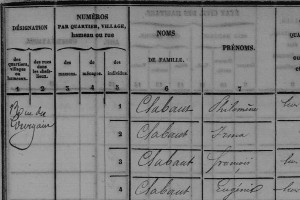 DÉSIGNATION
NUMÉROS
PAR QUARTIER, VILLAGE,
hameau ou rue
NOMS
DE FAMILLE.
PRÉNOMS.
des quartiers, villages ou hameaux.
des rues dans les
des maisons.
de ménages.
des individus.
1 2 3 4 5 6 7
Rue de
1 Chabaut Philomène
2 Chabaut Irma
3 Chabaut François
4 Chabaut Eugénie